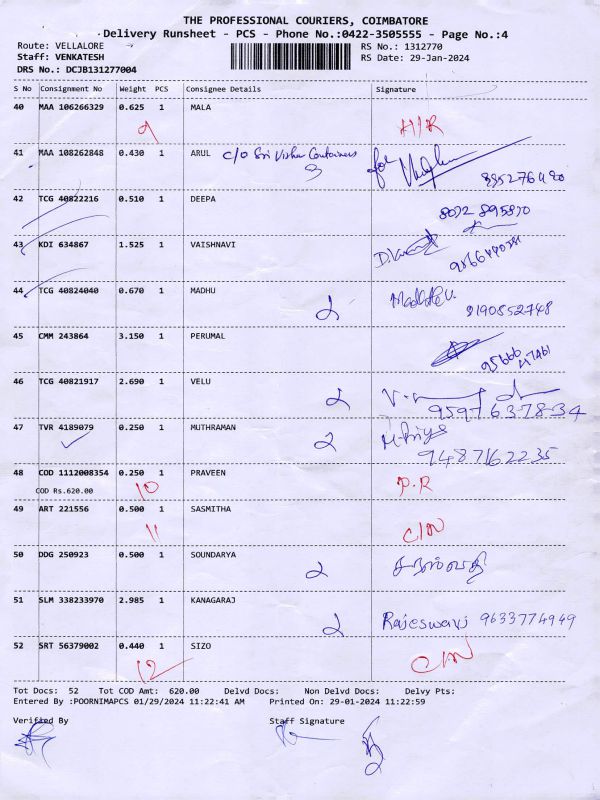 THE PROFESSIONAL COURIERS, COIMBATORE
Delivery Runsheet - PCS - Phone No.:0422-3505555 - Page No.:4
Route: VELLALORE RS No.: 1312770
Staff: VENKATESH RS Date: 29-Jan-2024
DRS No.: DCJB131277004
S No Consignment No Weight PCS Consignee Details Signature
40 MAA 106266329 0.625 1 MALA
9 H/R
41 MAA 108262848 0.430 1 ARUL C/O Sri Visha Containers for
42 TCG 40822216 0.510 1 DEEPA
8072 895870
43 KDI 634867 1.525 1 VAISHNAVI
44 TCG 40824040 0.670 1 MADHU 2
9190852748
45 CMM 243864 3.150 1 PERUMAL
46 TCG 40821917 2.690 1 VELU 2
9597637834
47 TVR 4189079 0.250 1 MUTHRAMAN 2 M. Priya
9487162235
48 COD 1112008354 0.250 1 PRAVEEN
COD Rs.620.00 10 P.R
49 ART 221556 0.500 1 SASMITHA
11 C/N
50 DDG 250923 0.500 1 SOUNDARYA 2
51 SLM 338233970 2.985 1 KANAGARAJ
2 Rajeswari 9633774949
52 SRT 56379002 0.440 1 SIZO
12 C/N
Tot Docs: 52 Tot COD Amt: 620.00 Delvd Docs: Non Delvd Docs: Delvy Pts:
Entered By :POORNIMAPCS 01/29/2024 11:22:41 AM Printed On: 29-01-2024 11:22:59
Verified By Staff Signature